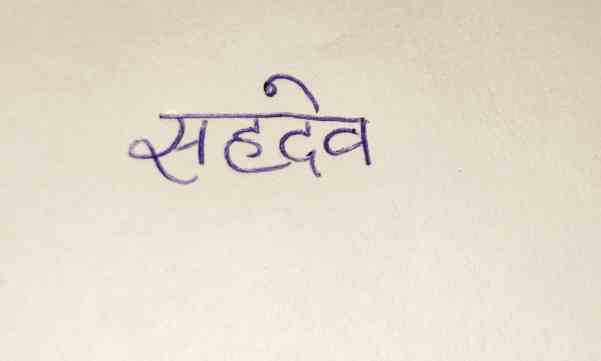 सहदेव